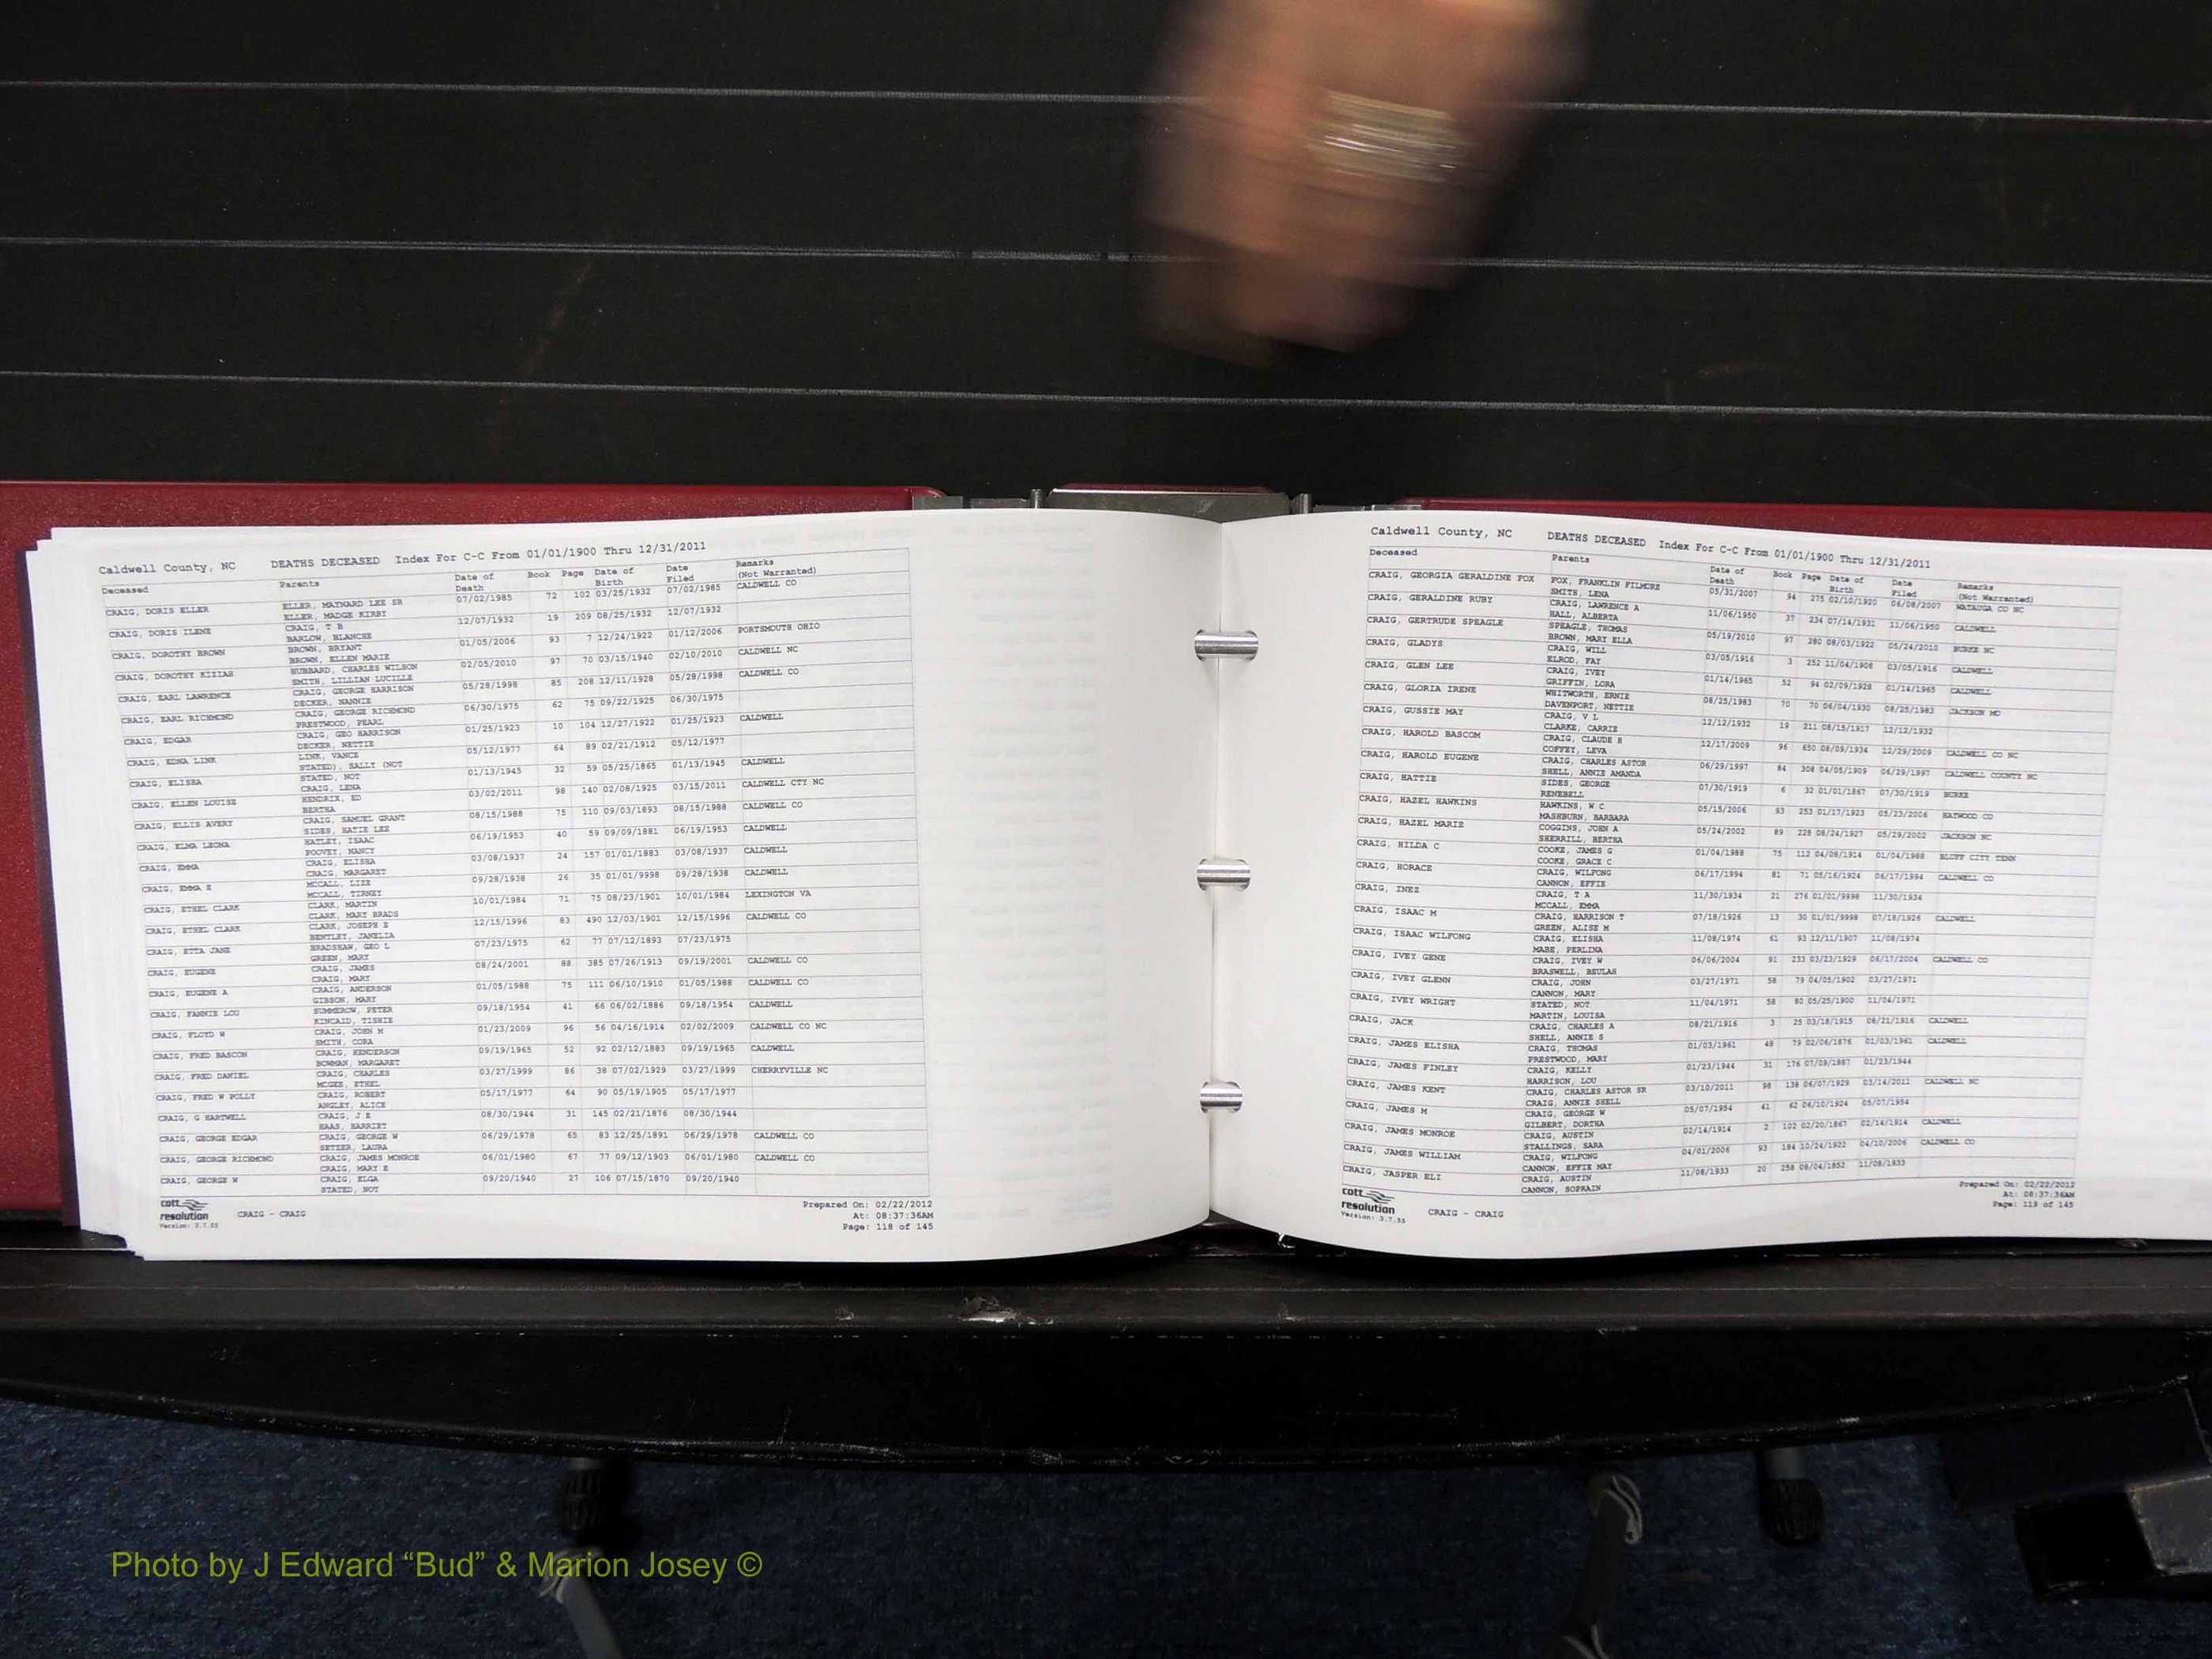 Caldwell County, NC DEATHS DECEASED Index For C-C From 01/01/1900 Thru 12/31/2011
Deceased Parents Date of Death Book Page Date of Birth Date Filed Remarks (Not Warranted)
CRAIG, DORIS ELLER ELLER, MAYNARD LEE SR 07/02/1985 72 102 03/25/1932 07/02/1985 CALDWELL CO
ELLER, MADGE KIRBY
CRAIG, DORIS ILENE CRAIG, T B 12/07/1932 19 209 08/25/1932 12/07/1932
BARLOW, BLANCHE
CRAIG, DOROTHY BROWN BROWN, BRYANT 01/05/2006 93 7 12/24/1922 01/12/2006 PORTSMOUTH OHIO
BROWN, ELLEN MARIE
CRAIG, DOROTHY KIZIAH HUBBARD, CHARLES WILSON 02/05/2010 97 70 03/15/1940 02/10/2010 CALDWELL NC
SMITH, LILLIAN LUCILLE
CRAIG, EARL LAWRENCE CRAIG, GEORGE HARRISON 05/28/1998 85 208 12/11/1928 05/28/1998 CALDWELL CO
DECKER, NANNIE
CRAIG, EARL RICHMOND CRAIG, GEORGE RICHMOND 06/30/1975 62 75 09/22/1925 06/30/1975
PRESTWOOD, PEARL
CRAIG, EDGAR CRAIG, GEO HARRISON 01/25/1923 10 104 12/27/1922 01/25/1923 CALDWELL
DECKER, NETTIE
CRAIG, EDNA LINK LINK, VANCE 05/12/1977 64 89 02/21/1912 05/12/1977
STATED), SALLY (NOT
CRAIG, ELISHA STATED, NOT 01/13/1945 32 59 05/25/1865 01/13/1945 CALDWELL
CRAIG, LENA
CRAIG, ELLEN LOUISE HENDRIX, ED 03/02/2011 98 140 02/08/1925 03/15/2011 CALDWELL CTY NC
BERTHA
CRAIG, ELLIS AVERY CRAIG, SAMUEL GRANT 08/15/1988 75 110 09/03/1893 08/15/1988 CALDWELL CO
SIDES, HATIE LEE
CRAIG, ELMA LEONA HATLEY, ISAAC 06/19/1953 40 59 09/09/1881 06/19/1953 CALDWELL
POOVEY, NANCY
CRAIG, EMMA CRAIG, ELISHA 03/08/1937 24 157 01/01/1883 03/08/1937 CALDWELL
CRAIG, MARGARET
CRAIG, EMMA E MCCALL, LIZE 09/28/1938 26 35 01/01/9998 09/28/1938 CALDWELL
MCCALL, TIRNEY
CRAIG, ETHEL CLARK CLARK, MARTIN 10/01/1984 71 75 08/23/1901 10/01/1984 LEXINGTON VA
CLARK, MARY BRADS
CRAIG, ETHEL CLARK CLARK, JOSEPH E 12/15/1996 83 490 12/03/1901 12/15/1996 CALDWELL CO
BENTLEY, JANELIA
CRAIG, ETTA JANE BRADSHAW, GEO L 07/23/1975 62 77 07/12/1893 07/23/1975
GREEN, MARY
CRAIG, EUGENE CRAIG, JAMES 08/24/2001 88 385 07/26/1913 09/19/2001 CALDWELL CO
CRAIG, MARY
CRAIG, EUGENE A CRAIG, ANDERSON 01/05/1988 75 111 06/10/1910 01/05/1988 CALDWELL CO
GIBSON, MARY
CRAIG, FANNIE LOU SUMMEROW, PETER 09/18/1954 41 66 06/02/1886 09/18/1954 CALDWELL
KINCAID, TISHIE
CRAIG, FLOYD W CRAIG, JOHN M 01/23/2009 96 56 04/16/1914 02/02/2009 CALDWELL CO NC
SMITH, CORA
CRAIG, FRED BASCON CRAIG, HENDERSON 09/19/1965 52 92 02/12/1883 09/19/1965 CALDWELL
BOWMAN, MARGARET
CRAIG, FRED DANIEL CRAIG, CHARLES 03/27/1999 86 38 07/02/1929 03/27/1999 CHERRYVILLE NC
MCGEE, ETHEL
CRAIG, FRED W POLLY CRAIG, ROBERT 05/17/1977 64 90 05/19/1905 05/17/1977
ANGLEY, ALICE
CRAIG, G HARTWELL CRAIG, J E 08/30/1944 31 145 02/21/1876 08/30/1944
HAAS, HARRIET
CRAIG, GEORGE EDGAR CRAIG, GEORGE W 06/29/1978 65 83 12/25/1891 06/29/1978 CALDWELL CO
SETZER, LAURA
CRAIG, GEORGE RICHMOND CRAIG, JAMES MONROE 06/01/1980 67 77 09/12/1903 06/01/1980 CALDWELL CO
CRAIG, MARY E
CRAIG, GEORGE W CRAIG, ELGA 09/20/1940 27 106 07/15/1870 09/20/1940
STATED, NOT
cott resolution
Version: 3.7.55
CRAIG - CRAIG
Prepared On: 02/22/2012
At: 08:37:36AM
Page: 118 of 145
Caldwell County, NC DEATHS DECEASED Index For C-C From 01/01/1900 Thru 12/31/2011
Deceased Parents Date of Death Book Page Date of Birth Date Filed Remarks (Not Warranted)
CRAIG, GEORGIA GERALDINE FOX FOX, FRANKLIN FILMORE 05/31/2007 94 275 02/10/1920 06/08/2007 WATAUGA CO NC
SMITH, LENA
CRAIG, GERALDINE RUBY CRAIG, LAWRENCE A 11/06/1950 37 234 07/14/1931 11/06/1950 CALDWELL
HALL, ALBERTA
CRAIG, GERTRUDE SPEAGLE SPEAGLE, THOMAS 05/19/2010 97 280 08/03/1922 05/24/2010 BURKE NC
BROWN, MARY ELLA
CRAIG, GLADYS CRAIG, WILL 03/05/1916 3 252 11/04/1908 03/05/1916 CALDWELL
ELROD, FAY
CRAIG, GLEN LEE CRAIG, IVEY 01/14/1965 52 94 02/09/1928 01/14/1965 CALDWELL
GRIFFIN, LORA
CRAIG, GLORIA IRENE WHITWORTH, ERNIE 08/25/1983 70 70 06/04/1930 08/25/1983 JACKSON MO
DAVENPORT, NETTIE
CRAIG, GUSSIE MAY CRAIG, V L 12/12/1932 19 211 08/15/1917 12/12/1932
CLARKE, CARRIE
CRAIG, HAROLD BASCOM CRAIG, CLAUDE H 12/17/2009 96 650 08/09/1934 12/29/2009 CALDWELL CO NC
COFFEY, LEVA
CRAIG, HAROLD EUGENE CRAIG, CHARLES ASTOR 06/29/1997 84 308 04/05/1909 06/29/1997 CALDWELL COUNTY NC
SHELL, ANNIE AMANDA
CRAIG, HATTIE SIDES, GEORGE 07/30/1919 6 32 01/01/1867 07/30/1919 BURKE
RENEBELL
CRAIG, HAZEL HAWKINS HAWKINS, W C 05/15/2006 93 253 01/27/1923 05/23/2006 HAYWOOD CO
MASHBURN, BARBARA
CRAIG, HAZEL MARIE COGGINS, JOHN A 05/24/2002 89 228 08/24/1927 05/29/2002 JACKSON NC
SHERRILL, BERTHA
CRAIG, HILDA C COOKE, JAMES G 01/04/1988 75 112 04/08/1914 01/04/1988 BLUFF CITY TENN
COOKE, GRACE C
CRAIG, HORACE CRAIG, WILFONG 06/17/1994 81 71 05/16/1924 06/17/1994 CALDWELL CO
CANNON, EFFIE
CRAIG, INEZ CRAIG, T A 11/30/1934 21 276 01/01/9998 11/30/1934
MCCALL, EMMA
CRAIG, ISAAC M CRAIG, HARRISON T 07/18/1926 13 30 01/01/9998 07/18/1926 CALDWELL
GREEN, ALISE M
CRAIG, ISAAC WILFONG CRAIG, ELISHA 11/08/1974 61 93 12/11/1907 11/08/1974
MABE, PERLINA
CRAIG, IVEY GENE CRAIG, IVEY W 06/06/2004 91 233 03/23/1929 06/17/2004 CALDWELL CO
BRASWELL, BEULAH
CRAIG, IVEY GLENN CRAIG, JOHN 03/27/1971 58 79 04/05/1902 03/27/1971
CANNON, MARY
CRAIG, IVEY WRIGHT STATED, NOT 11/04/1971 58 80 05/25/1900 11/04/1971
MARTIN, LOUISA
CRAIG, JACK CRAIG, CHARLES A 08/21/1916 3 25 03/18/1915 08/21/1916 CALDWELL
SHELL, ANNIE S
CRAIG, JAMES ELISHA CRAIG, THOMAS 01/03/1961 48 79 02/06/1876 01/03/1961 CALDWELL
PRESTWOOD, MARY
CRAIG, JAMES FINLEY CRAIG, KELLY 01/23/1944 31 176 07/09/1887 01/23/1944
HARRISON, LOU
CRAIG, JAMES KENT CRAIG, CHARLES ASTOR SR 03/10/2011 98 138 06/07/1929 03/14/2011 CALDWELL NC
CRAIG, ANNIE SHELL
CRAIG, JAMES M CRAIG, GEORGE W 05/07/1954 41 62 06/10/1924 05/07/1954
GILBERT, DORTHA
CRAIG, JAMES MONROE CRAIG, AUSTIN 02/14/1914 2 102 02/20/1867 02/14/1914 CALDWELL
STALLINGS, SARA
CRAIG, JAMES WILLIAM CRAIG, WILFONG 04/01/2006 93 184 10/24/1922 04/10/2006 CALDWELL CO
CANNON, EFFIE MAY
CRAIG, JASPER ELI CRAIG, AUSTIN 11/08/1933 20 258 08/04/1852 11/08/1933
CANNON, SOPRAIN
cott resolution
Version: 3.7.55
CRAIG - CRAIG
Prepared On: 02/22/2012
At: 08:37:36AM
Page: 119 of 145
Photo by J Edward “Bud” & Marion Josey ©